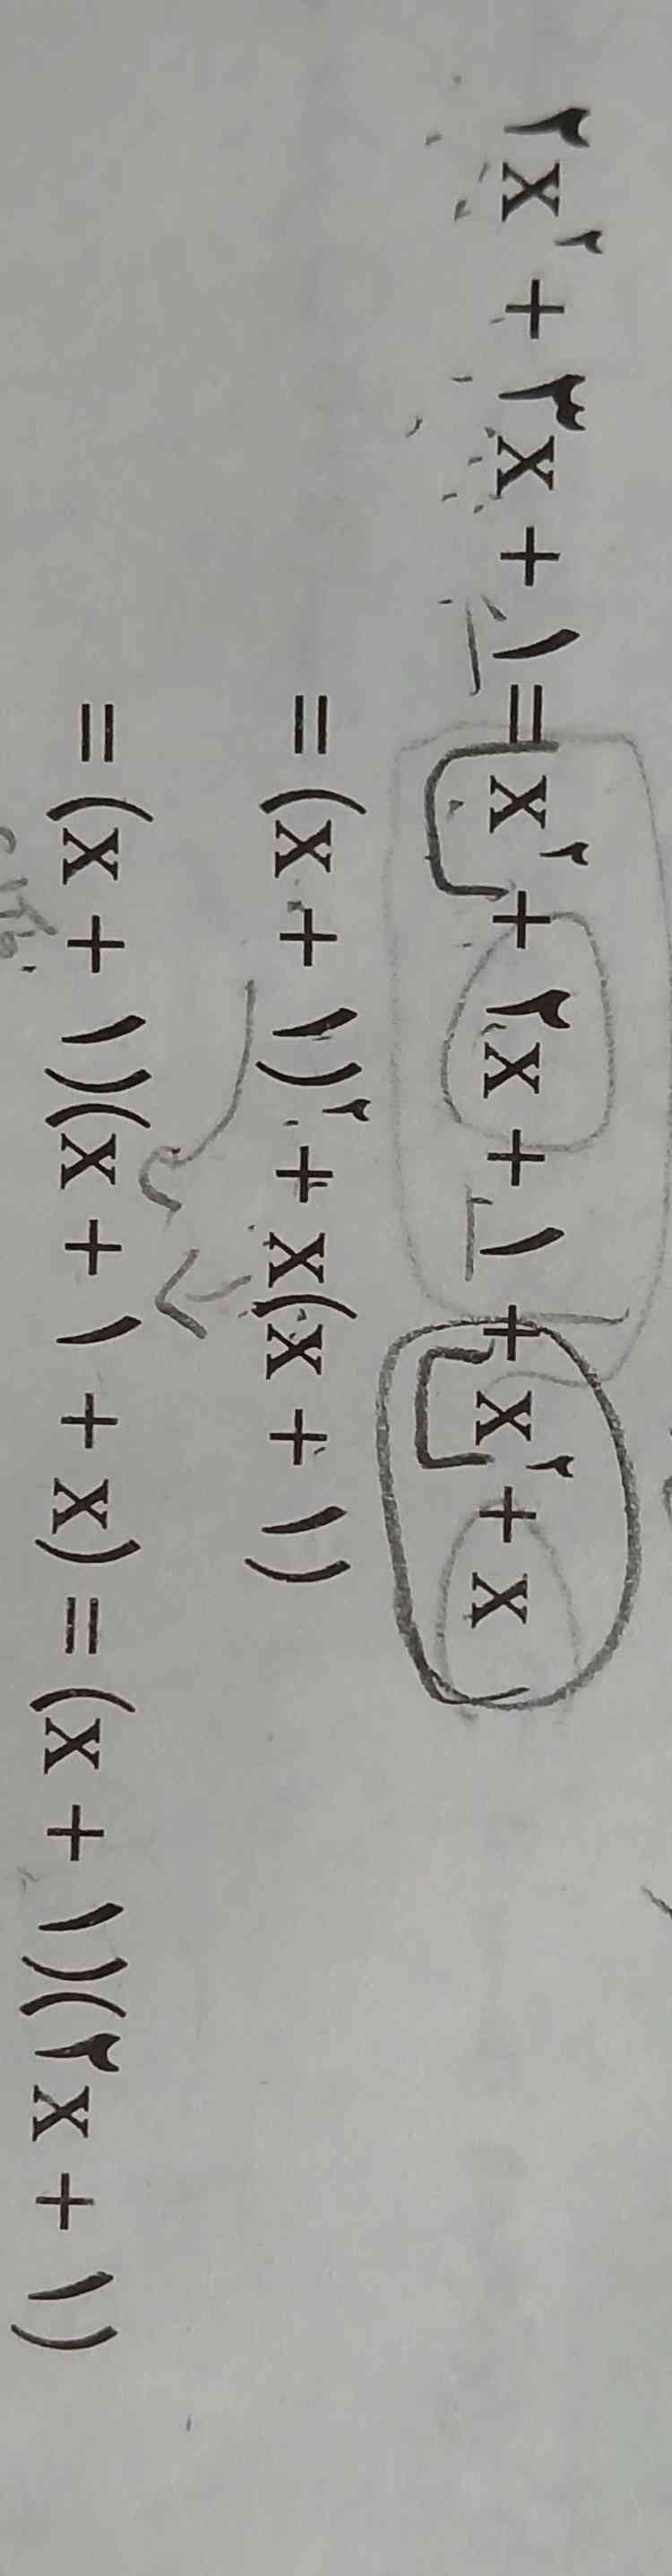 ۲x^۲ + ۳x + ۱ = x^۲ + ۲x + ۱ + x^۲ + x
= (x + ۱)^۲ + x(x + ۱)
= (x + ۱)(x + ۱ + x) = (x + ۱)(۲x + ۱)